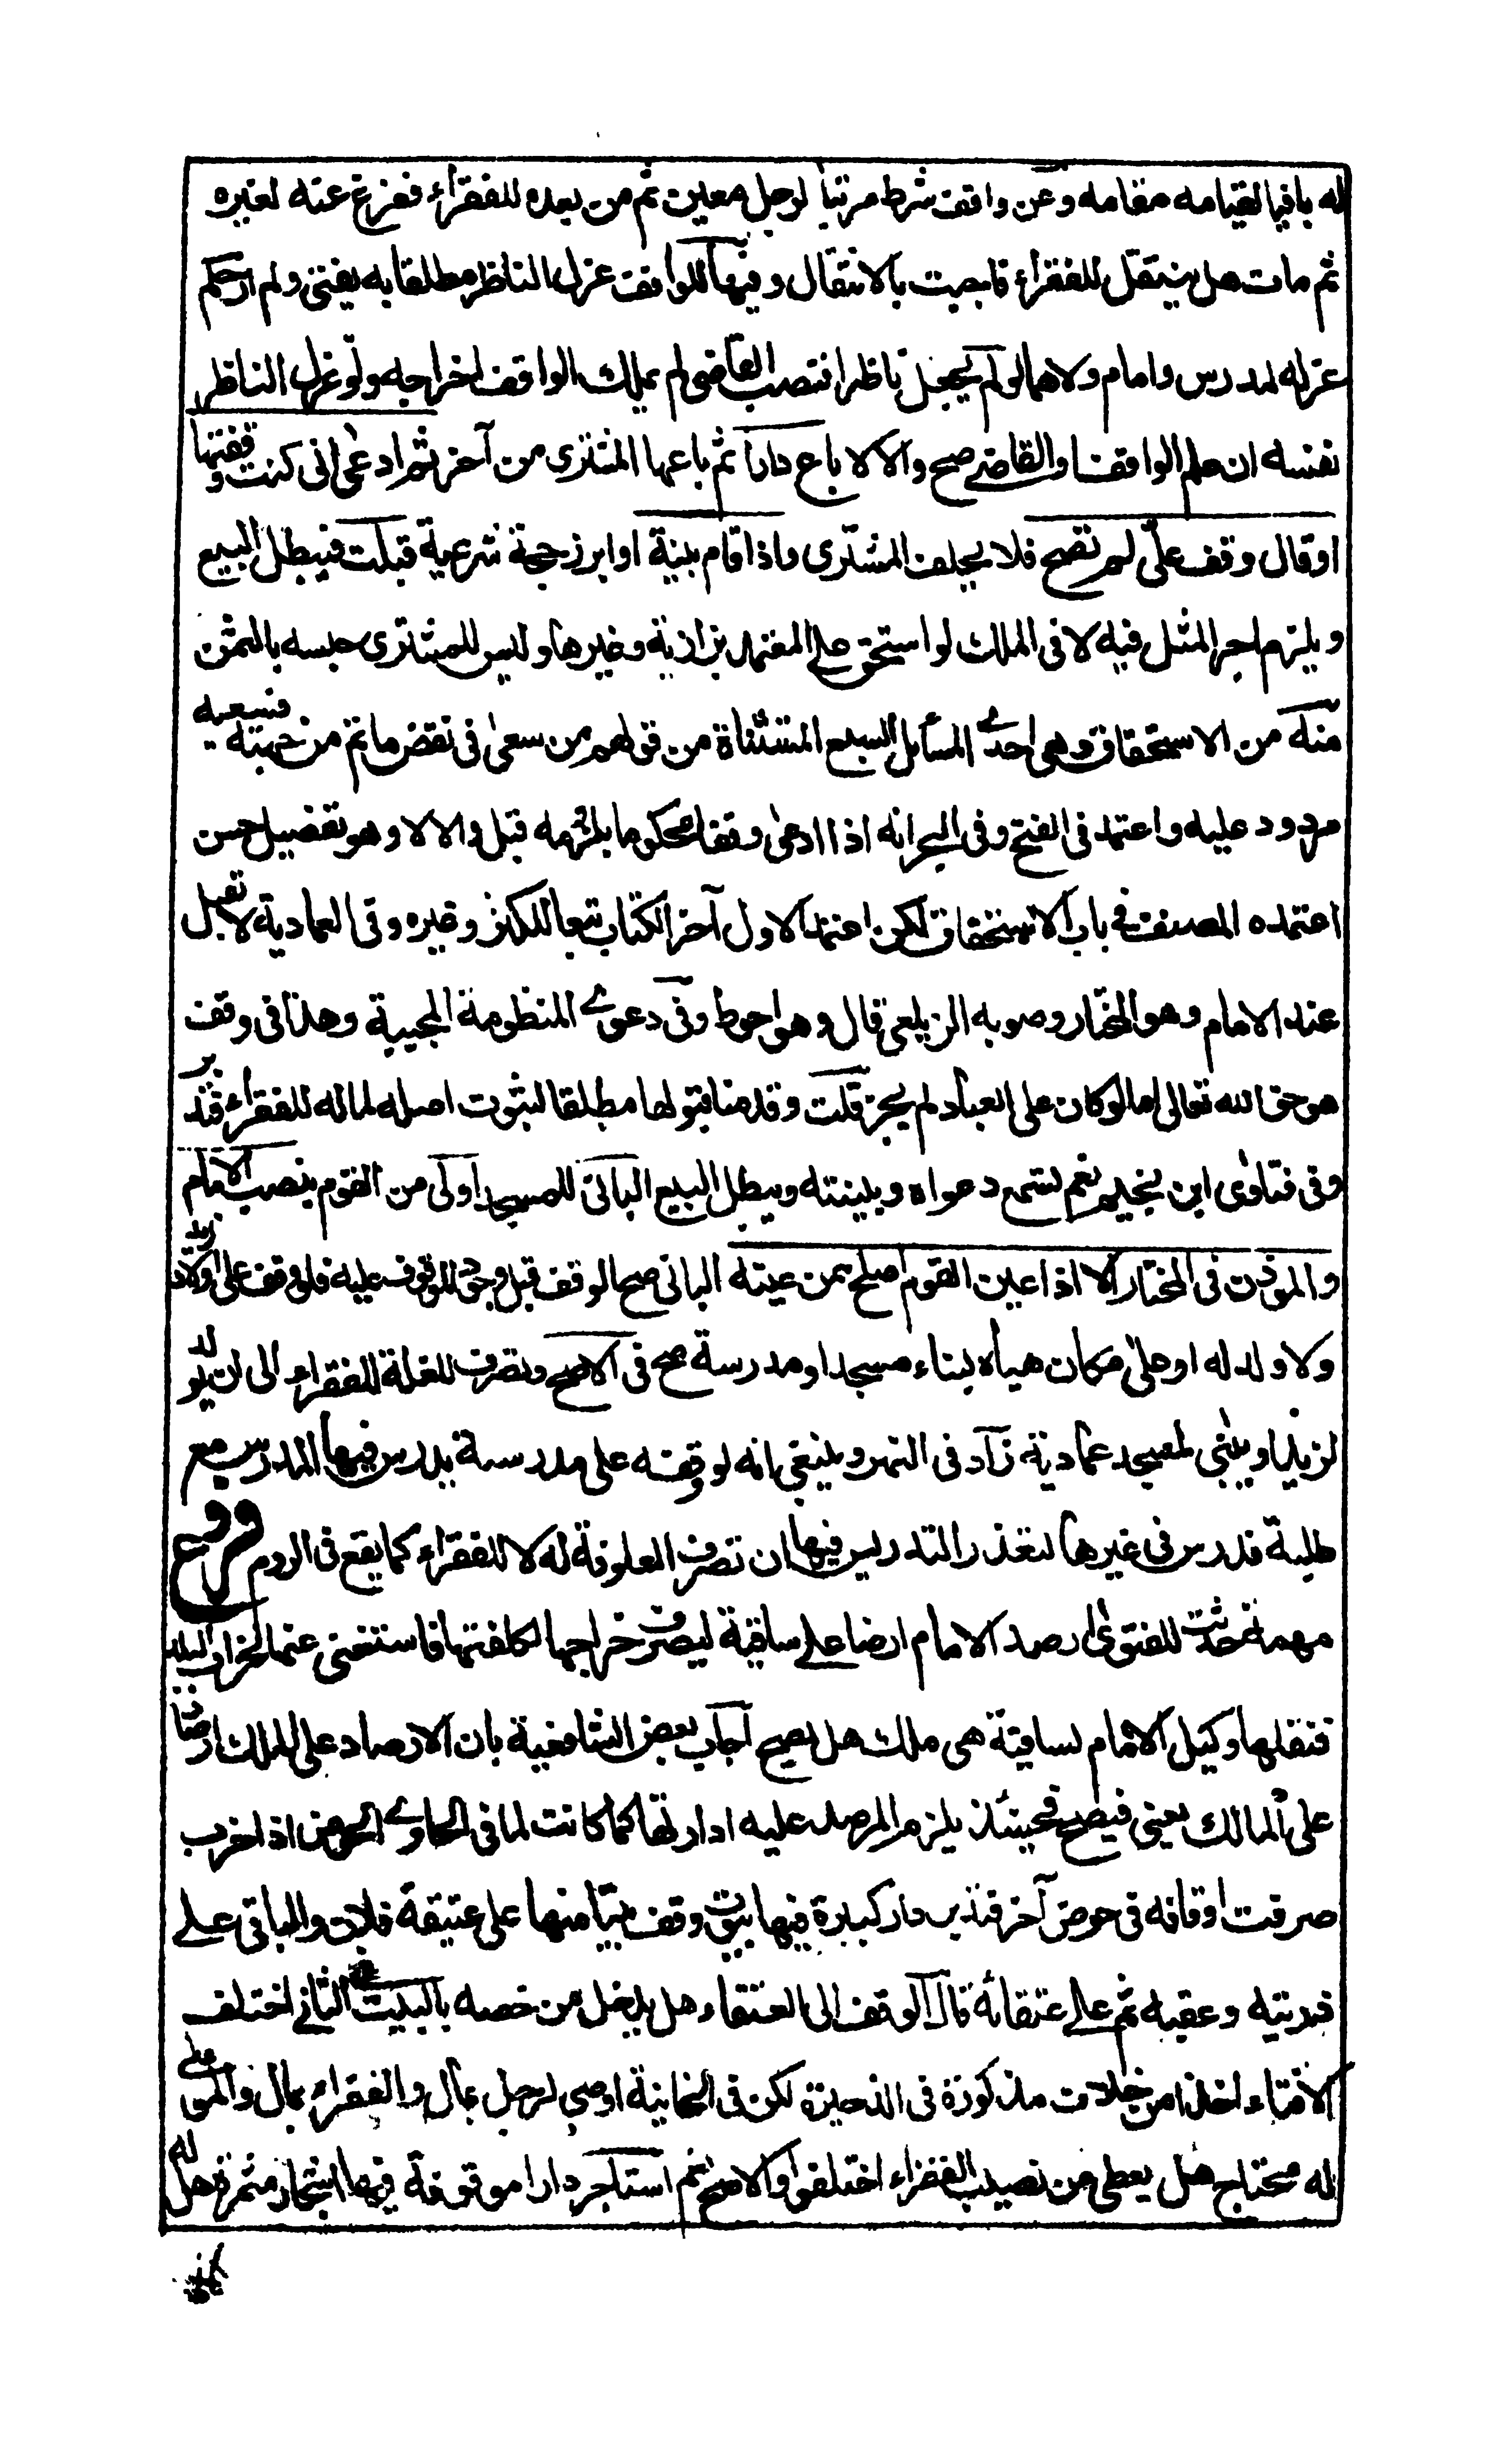 له باقيا لقيامه مقامه وعن واقف شرط مرتبا لرجل معين ثم من بعده للفقراء ففرغ عنه لغيره
ثم مات هل ينتقل للفقراء فاجبت بالانتقال وفيها للواقف عزل الناظر مطلقا به يفتى ولم ار حكم
عزله لمدرس وامام ولاهما لو لم يجعل ناظرا فنصب القاضي لم يملك الواقف اخراجه ولو عزل الناظر
نفسه ان علم الواقف او القاضي صح والا لا باع دارا ثم باعها المشترى من آخر ثم ادعى انى كنت وقفتها
او قال وقف علىّ لم تصح فلا يحلف المشترى واذا اقام بينة او ابرز حجة شرعية قبلت فيبطل البيع
ويلزم اجر المثل فيه لا فى الملك لو استحق على المعتمد بزازية وغيرها وليس للمشترى حبسه بالثمن
منه من الاستحقاق وهى احدى المسائل السبع المستثناة من قولهم من سعى فى نقض ما تم من جهته فسعيه
مردود عليه واعتمد فى الفتح وفى البحر انه اذا ادعى وقفا محكوما بلزومه قبل والا لا وهو تفصيل حسن
اعتمده المصنف فى باب الاستحقاق لكن اعتمد الاول آخر الكتاب تبعا للكنز وغيره وفى العمادية لا تقبل
عند الامام وهو المختار وصوبه الزيلعى قال وهو احوط وفى دعوى المنظومة المحبية وهذا فى وقف
هو حق الله تعالى اما لو كان على العباد لم يجز قلت وقدمنا قبولها مطلقا لثبوت اصله لماله للفقراء فتدبر
وفى فتاوى ابن نجيم نعم تسمع دعواه وبينته ويبطل البيع البانى للمسجد اولى من القوم بنصب الامام
والمؤذن فى المختار الا اذا عين القوم اصلح ممن عينه البانى صح الوقف قبل وجود الموقوف عليه فلو وقف على اولاد زيد
ولا ولد له او على مكان هياه لبناء مسجد او مدرسة صح فى الاصح وتصرف للغلة للفقراء الى ان يولد
لزيد او يبنى لمسجد عمادية زاد فى النهر وينبغى انه لو وقفه على مدرسة يدرس فيها المدرس مع
طلبة فدرس فى غيرها لتعذر التدريس فيها ان تصرف العلوفة له لا للفقراء كما يقع فى الروم فروع
مهمة حدثت للفتوى ارصد الامام ارضا على ساقية ليصرف خراجها لكلفتها فاستغنى عنها لخراب البلد
فنقلها وكيل الامام لساقية هى ملك هل يصح اجاب بعض الشافعية بان الارصاد على الملك ارصاد
على المالك يعنى فيصح فحينئذ يلزم المرصد عليه ادارتها كما كانت لما فى الحاوى الحوض اذا خرب
صرفت اوقافه فى حوض آخر فتدبر دار كبيرة فيها بيوت وقف بيتا منها على عتيقه فلان والباقى على
ذريته وعقبه ثم على عتقائه فآل الوقف الى العتقاء هل يدخل من خصه بالبيت فى الثانى اختلف
الافتاء اخذا من خلاف مذكورة فى الذخيرة لكن فى الخانية اوصى لرجل بمال وللفقراء بمال والموصى
له محتاج هل يعطى من نصيب الفقراء اختلفوا والاصح نعم استاجر دارا موقوفة فيها اشجار مثمرة هل له